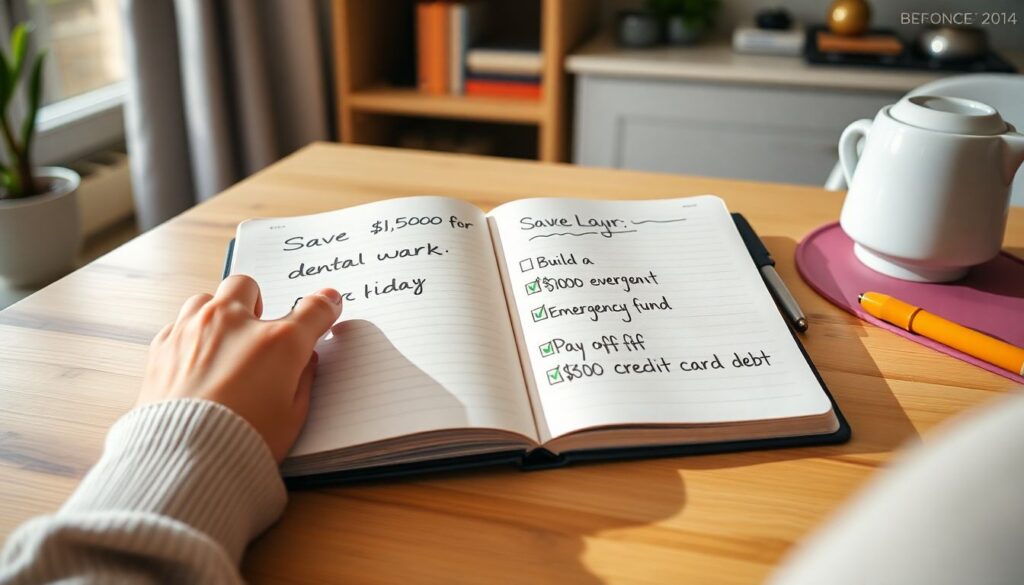 Save $1,5000 for
dental wark.
tiday
Save Layr:
Build a
$1000 evergent
Emergency fund
Pay off fff
$500 credit card debt
BEFONCE 2014